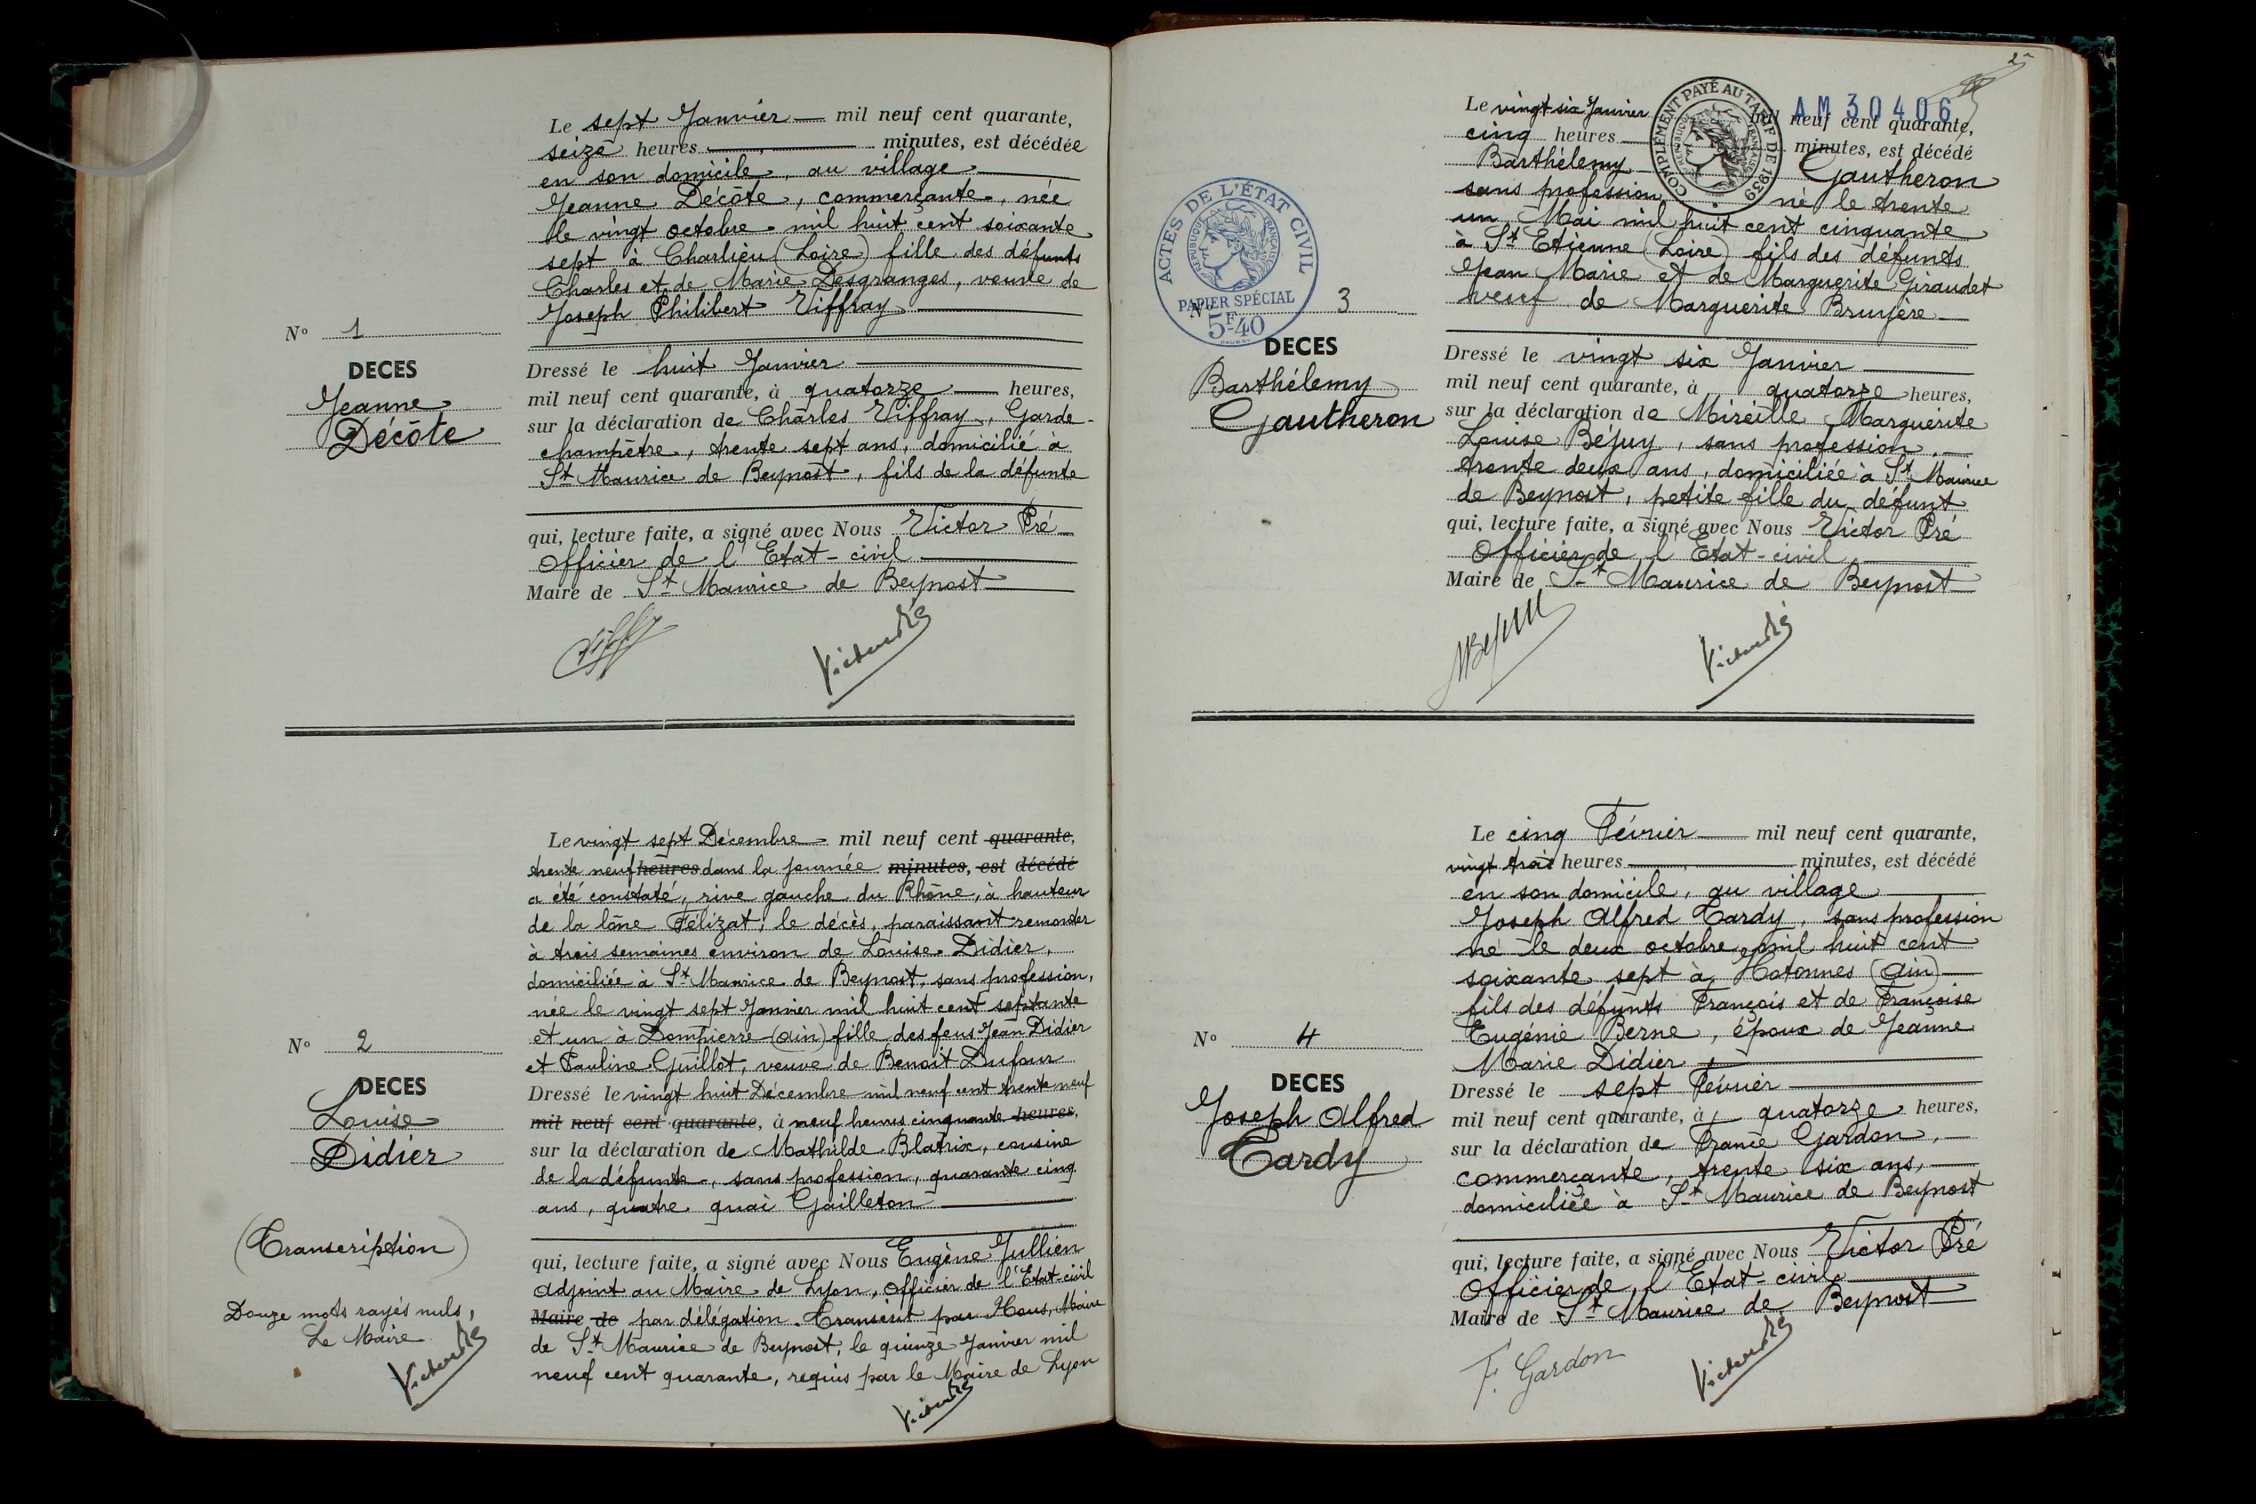 Le sept Janvier mil neuf cent quarante,
seize heures minutes, est décédée
en son domicile, au village
Jeanne Décôte, commerçante, née
le vingt octobre mil huit cent soixante
sept à Charlieu (Loire) fille des défunts
Charles et de Marie Desgranges, veuve de
Joseph Philibert Viffray
N° 1
DECES
Jeanne
Décôte
Dressé le huit Janvier
mil neuf cent quarante, à quatorze heures,
sur la déclaration de Charles Viffray, Garde-
champêtre, trente sept ans, domicilié à
St Maurice de Beynost, fils de la défunte
qui, lecture faite, a signé avec Nous Victor Pré
Officier de l'Etat-civil
Maire de St Maurice de Beynost
Victor Pré
Le vingt sept Décembre mil neuf cent quarante,
trente neuf heures dans la journée minutes, est décédé
a été constaté, rive gauche du Rhône, à hauteur
de la lône Félizat, le décès, paraissant remonter
à trois semaines environ de Louise Didier,
domiciliée à St Maurice de Beynost, sans profession,
née le vingt sept Janvier mil huit cent septante
et un à Dompierre (Ain) fille des feus Jean Didier
et Pauline Guillot, veuve de Benoit Dufour
N° 2
DECES
Louise
Didier
(Transcription)
Douze mots rayés nuls,
Le Maire
Victor Pré
Dressé le vingt huit Décembre mil neuf cent trente neuf
mil neuf cent quarante, à neuf heures cinquante heures,
sur la déclaration de Mathilde Blatrix, cousine
de la défunte, sans profession, quarante cinq
ans, quatre quai Gailleton
qui, lecture faite, a signé avec Nous Eugène Jullien
adjoint au Maire de Lyon, Officier de l'Etat-civil
Maire de par délégation. Transcrit par Nous, Maire
de St Maurice de Beynost, le quinze Janvier mil
neuf cent quarante, requis par le Maire de Lyon
Victor Pré
2
AM 30406
COMPLÉMENT PAYÉ AU TARIF DE 1939
Le vingt six Janvier mil neuf cent quarante,
cinq heures minutes, est décédé
Barthélemy Gautheron
sans profession né le trente
un Mai mil huit cent cinquante
à St Etienne (Loire) fils des défunts
Jean Marie et de Marguerite Giraudet
veuf de Marguerite Bruyère
ACTES DE L'ÉTAT CIVIL
RÉPUBLIQUE FRANÇAISE
PAPIER SPÉCIAL
5F40
N° 3
DECES
Barthélemy
Gautheron
Dressé le vingt six Janvier
mil neuf cent quarante, à quatorze heures,
sur la déclaration de Mireille Marguerite
Louise Béjuy, sans profession,
trente deux ans, domiciliée à St Maurice
de Beynost, petite fille du défunt
qui, lecture faite, a signé avec Nous Victor Pré
Officier de l'Etat-civil
Maire de St Maurice de Beynost
Victor Pré
Le cinq Février mil neuf cent quarante,
vingt trois heures minutes, est décédé
en son domicile, au village
Joseph Alfred Tardy, sans profession
né le deux octobre mil huit cent
soixante sept à Hotonnes (Ain)
fils des défunts François et de Françoise
Eugénie Berne, époux de Jeanne
Marie Didier
N° 4
DECES
Joseph Alfred
Tardy
Dressé le sept Février
mil neuf cent quarante, à quatorze heures,
sur la déclaration de Gardon,
commerçante, trente six ans,
domiciliée à St Maurice de Beynost
qui, lecture faite, a signé avec Nous Victor Pré
Officier de l'Etat-civil
Maire de St Maurice de Beynost
F. Gardon
Victor Pré